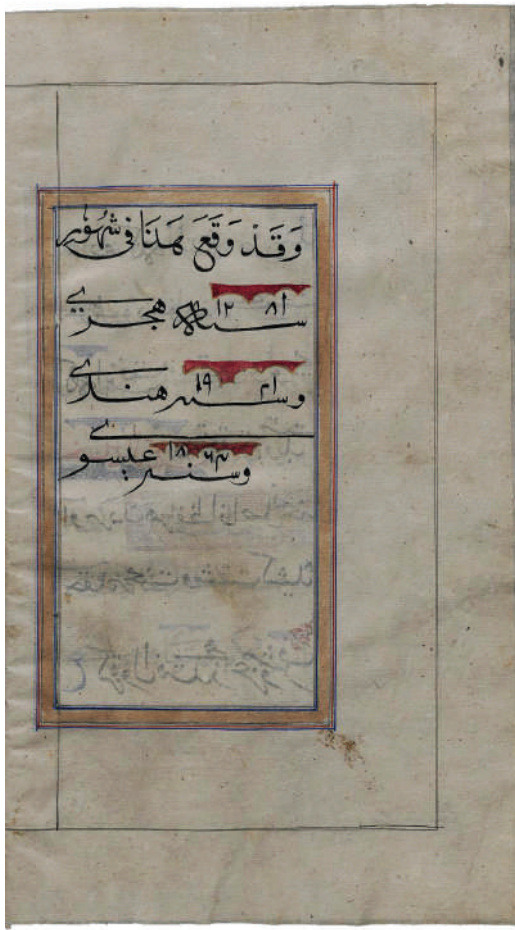 وَقَدْ وَقَعَ هَذَا في شُهُور
سنة ١٢٨١ هجري
وسنه ١٩٢١ هندي
وسنه ١٨٦٤ عيسوي